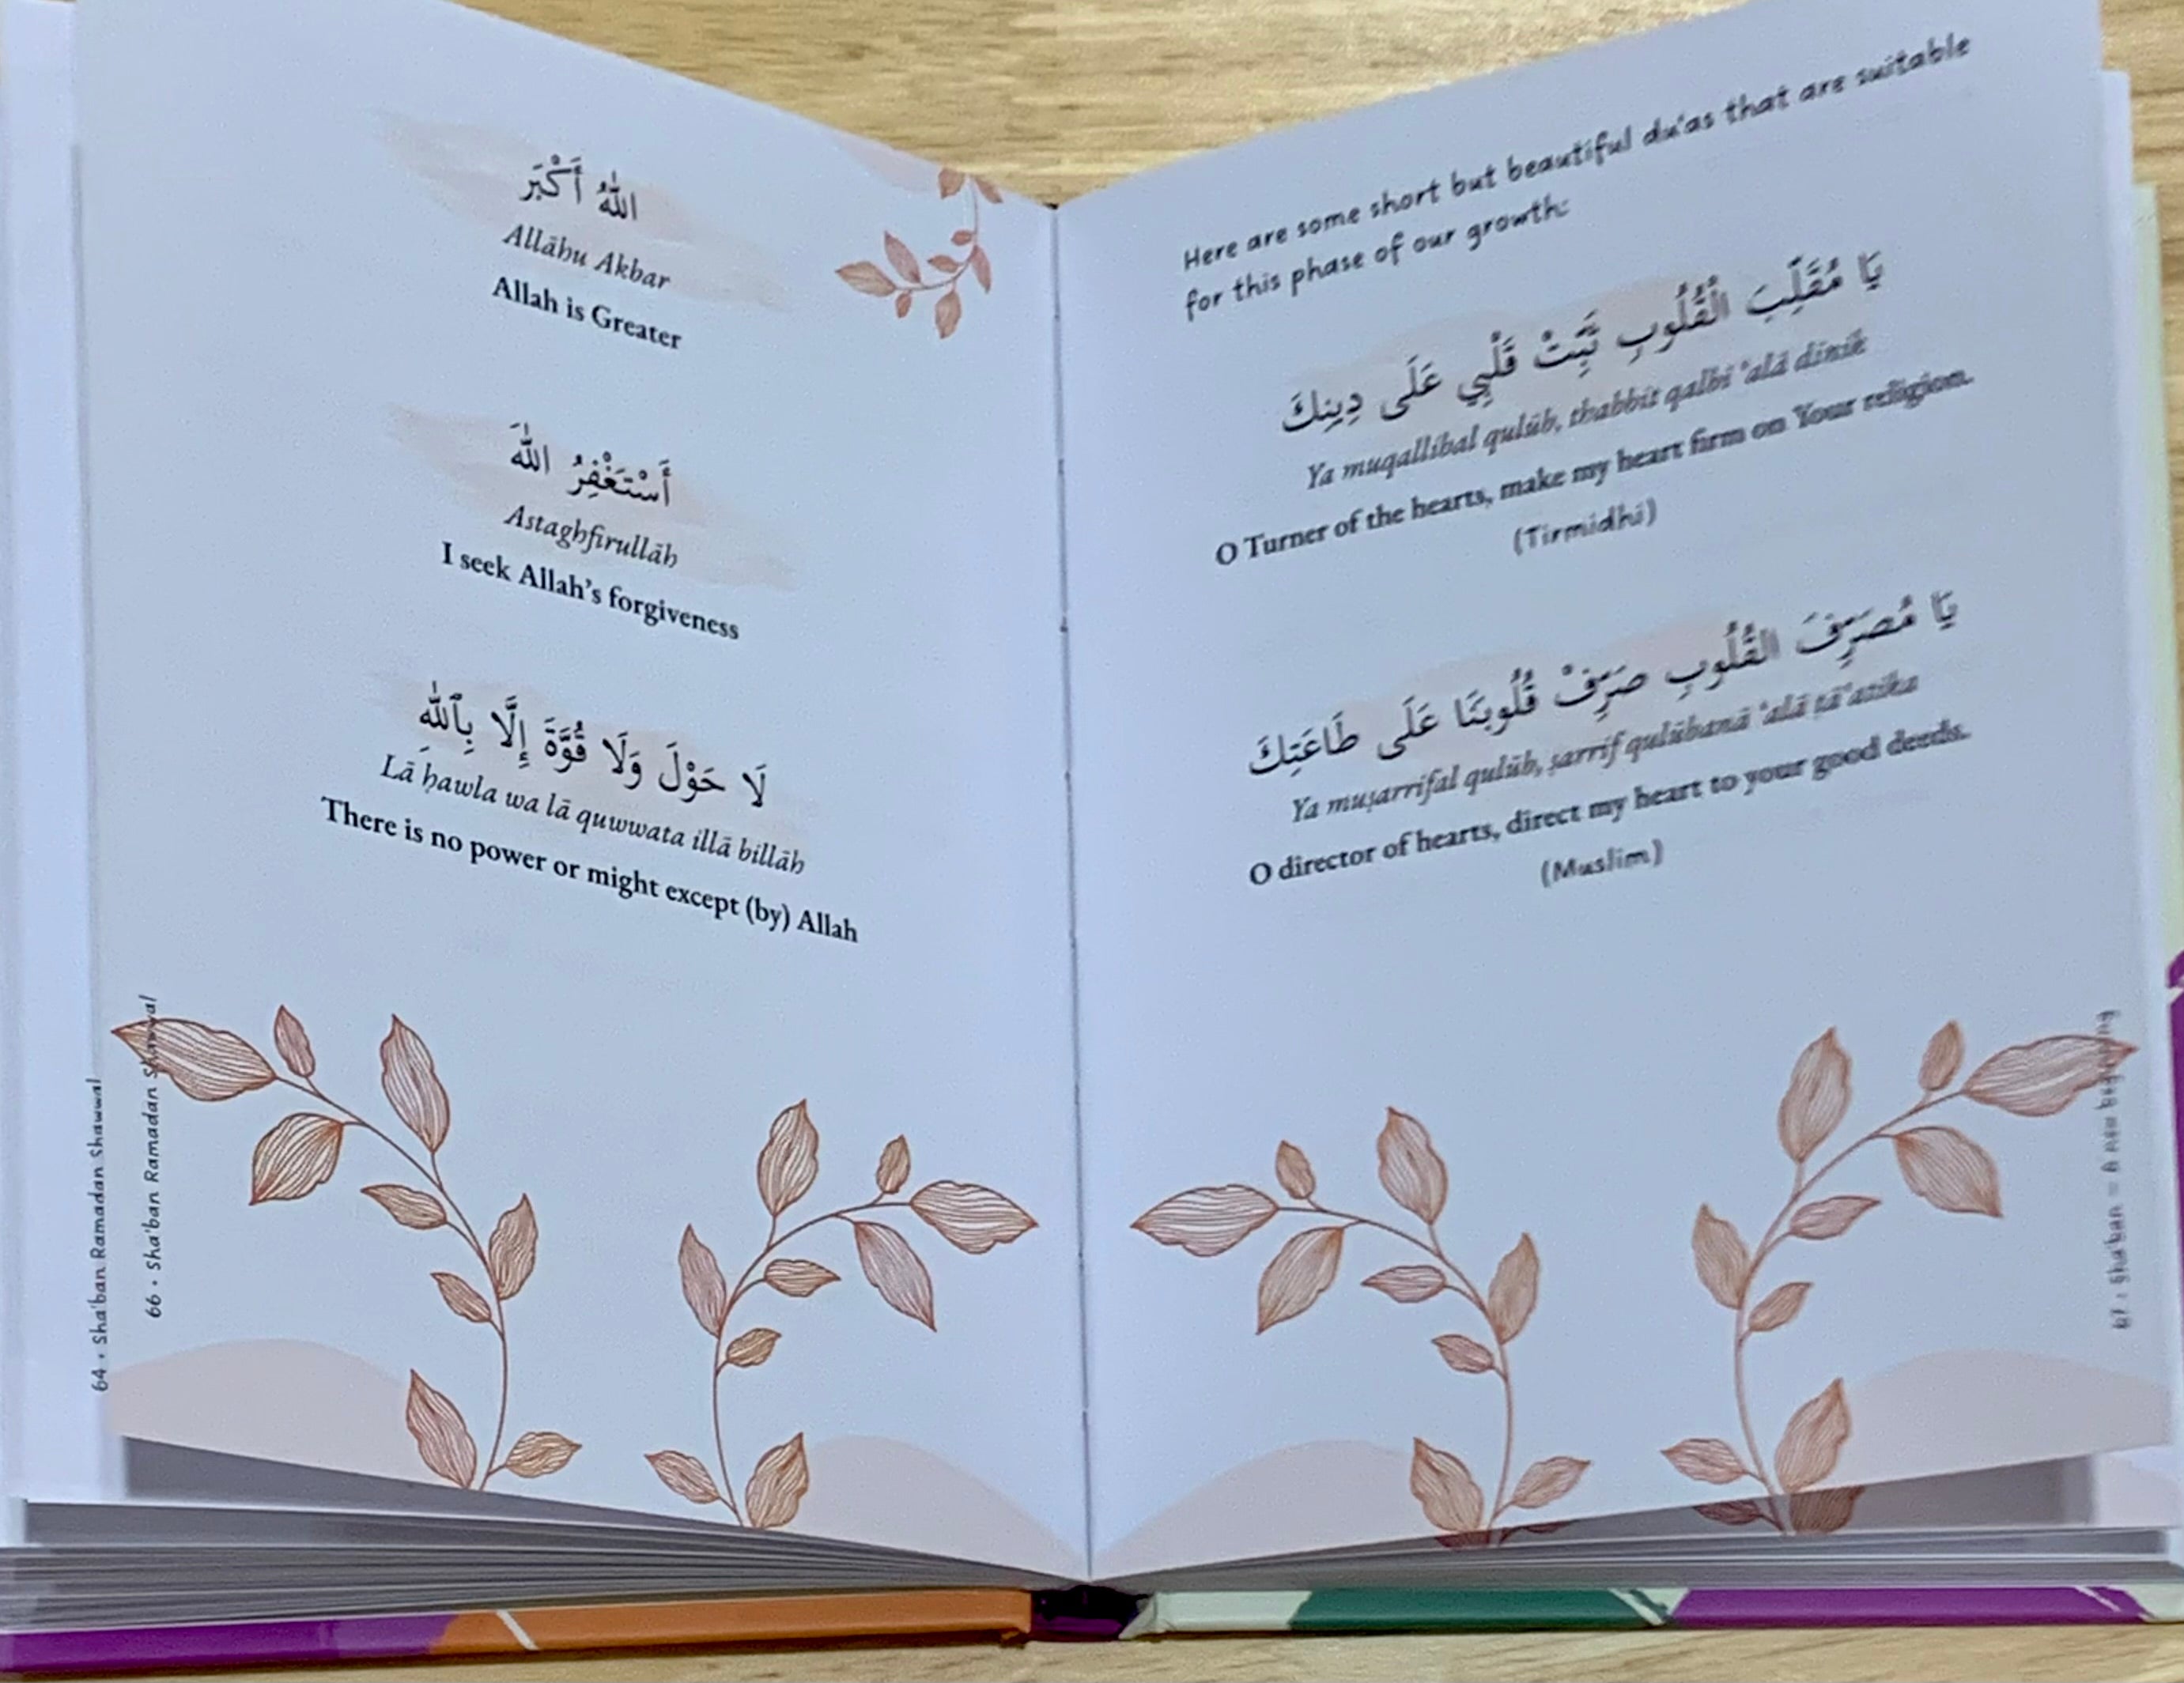 اللّٰهُ أَكْبَر
Allāhu Akbar
Allah is Greater
أَسْتَغْفِرُ اللّٰهَ
Astaghfirullāh
I seek Allah’s forgiveness
لَا حَوْلَ وَلَا قُوَّةَ إِلَّا بِٱللّٰهِ
Lā ḥawla wa lā quwwata illā billāh
There is no power or might except (by) Allah
64 • Sha'ban Ramadan Shawwal
66 • Sha'ban Ramadan Shawwal
Here are some short but beautiful du'as that are suitable
for this phase of our growth:
يَا مُقَلِّبَ الْقُلُوبِ ثَبِّتْ قَلْبِي عَلَى دِينِكَ
Ya muqallibal qulūb, thabbit qalbī ‘alā dīnik
O Turner of the hearts, make my heart firm on Your religion.
(Tirmidhi)
يَا مُصَرِّفَ القُلُوبِ صَرِّفْ قُلُوبَنَا عَلَى طَاعَتِكَ
Ya muṣarrifal qulūb, ṣarrif qulūbanā ‘alā ṭā‘atika
O director of hearts, direct my heart to your good deeds.
(Muslim)
67 • Sha'ban – a new beginning